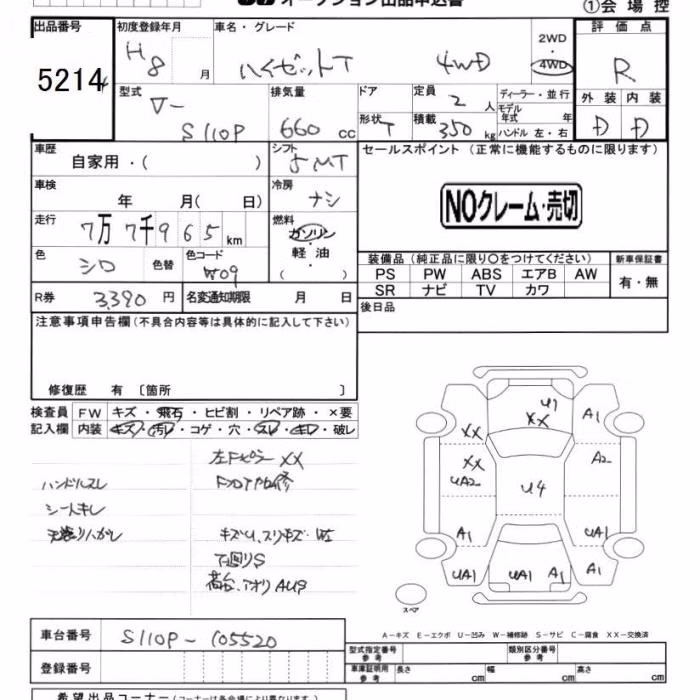 オークション出品申込書
①会場控
出品番号 5214
初度登録年月 H8 月
車名・グレード ハイゼットT 4WD
2WD・4WD
評価点 R
外装 D 内装 D
型式 V- S110P
排気量 660 cc
ドア
形状 T
定員 2 人
積載 350 kg
ディーラー・並行
モデル年式 年
ハンドル 左・右
車歴 自家用・( )
シフト 5MT
車検 年 月( 日)
冷房 ナシ
走行 7万7千965 km
燃料 ガソリン・軽油・( )
色 シロ 色替
色コード W09
R券 3,390 円
名変通知期限 月 日
セールスポイント(正常に機能するものに限ります)
NOクレーム・売切
装備品(純正品に限り○をつけてください)
PS PW ABS エアB AW
SR ナビ TV カワ
新車保証書 有・無
後日品
注意事項申告欄(不具合内容等は具体的に記入して下さい)
修復歴 有 〔箇所 〕
検査員記入欄
FW キズ・飛石・ヒビ割・リペア跡・×要
内装 キズ・汚レ・コゲ・穴・スレ・キレ・破レ
ハンドルスレ
シートキレ
左Fピラー XX
キズU、スリキズ・
下回りS
荷台、アオリ AUS
U1
XX
A1
XX
XX
UA2
A2
U4
A1
UA1
UA1
UA1
A1
A1
スペア
A-キズ E-エクボ U-凹み W-補修跡 S-サビ C-腐食 XX-交換済
車台番号 S110P-105520
登録番号
型式指定番号 参考
類別区分番号 参考
車庫証明用 参考 長さ cm 幅 cm 高さ cm
希望出品コーナー(コーナーは各会場により異なります)